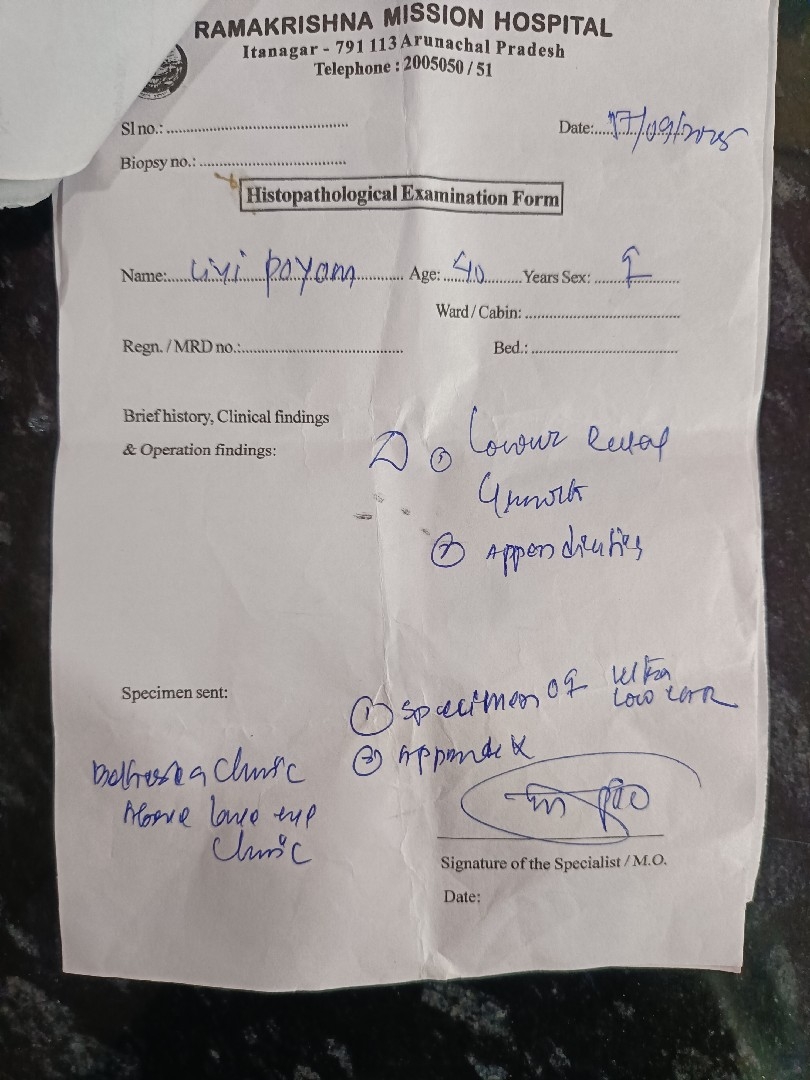 RAMAKRISHNA MISSION HOSPITAL
Itanagar - 791 113 Arunachal Pradesh
Telephone : 2005050 / 51
Sl no.:
Date: 17/09/2025
Biopsy no.:
Histopathological Examination Form
Name: payam Age: 40 Years Sex: F
Ward / Cabin:
Regn. / MRD no.:
Bed.:
Brief history, Clinical findings
& Operation findings:
① Lower
Growth
②
Specimen sent:
① Specimen of Ultra
Low
②
Clinic
Above eye
Clinic
Signature of the Specialist / M.O.
Date: